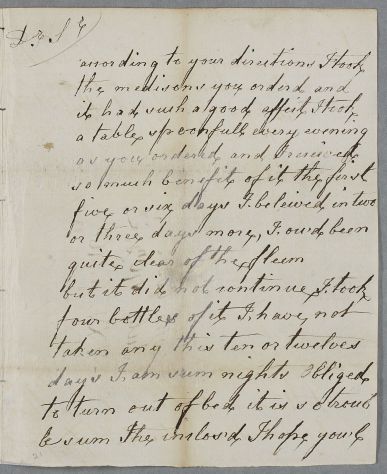 D. E. S G
according to your directions I took
the medisons you orderd and
it had such a good affeit I took
a table spoonfull every evening
as you orderd and I recived
so much benifit of it the first
five or six days I beleived in two
or three days more, I oud been
quite clear of the fleem
but it did not continue I took
four bottles of it I have not
taken any this ten or twelves
days I am sum nights obliged
to turn out of bed it is so troub
le sum The inclosd I hope youl